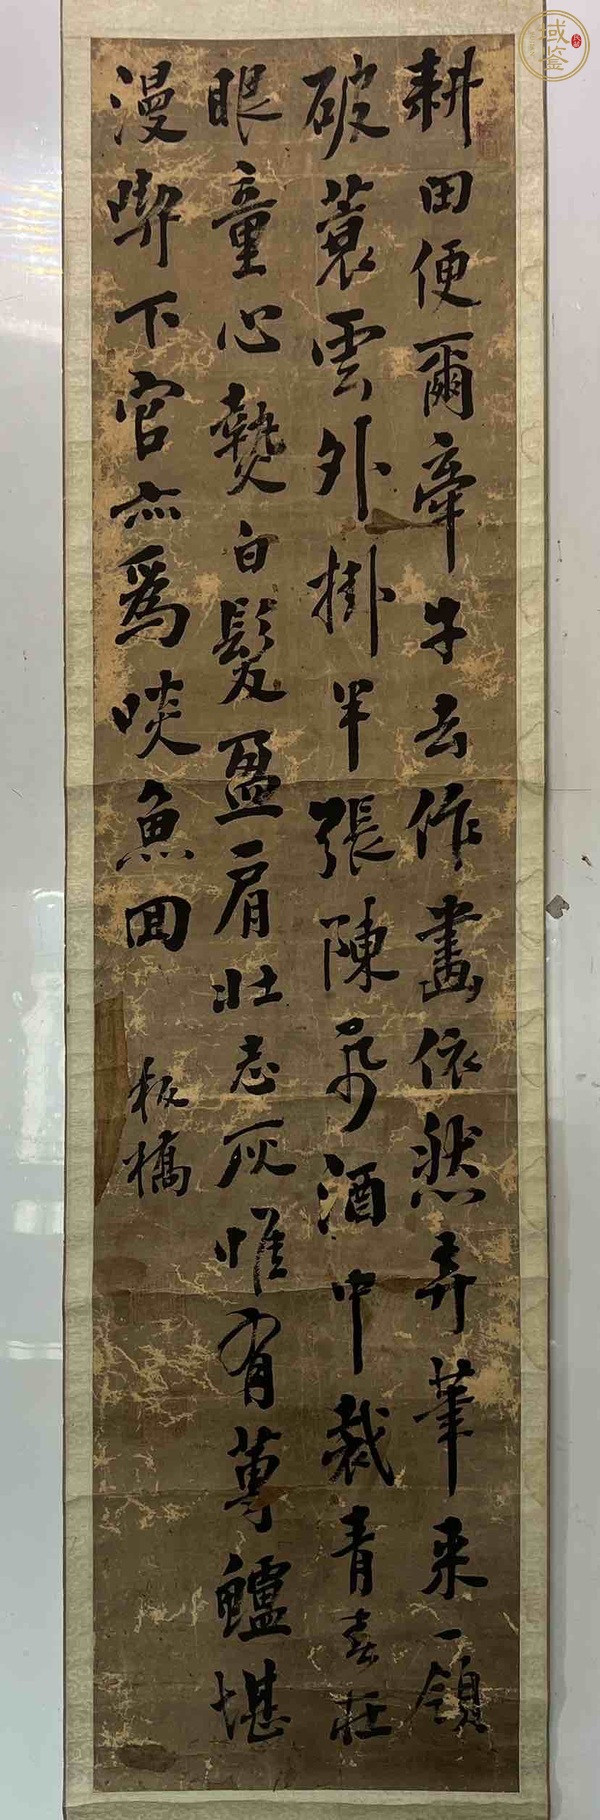 耕田便爾牽牛去作畫依然弄筆来一領
破蓑雲外掛半張陳帋酒中裁青春在
眼童心熱白髮盈肩壯志灰惟有蓴鱸堪
漫喫下官亦爲啖魚回
板橋
域鉴